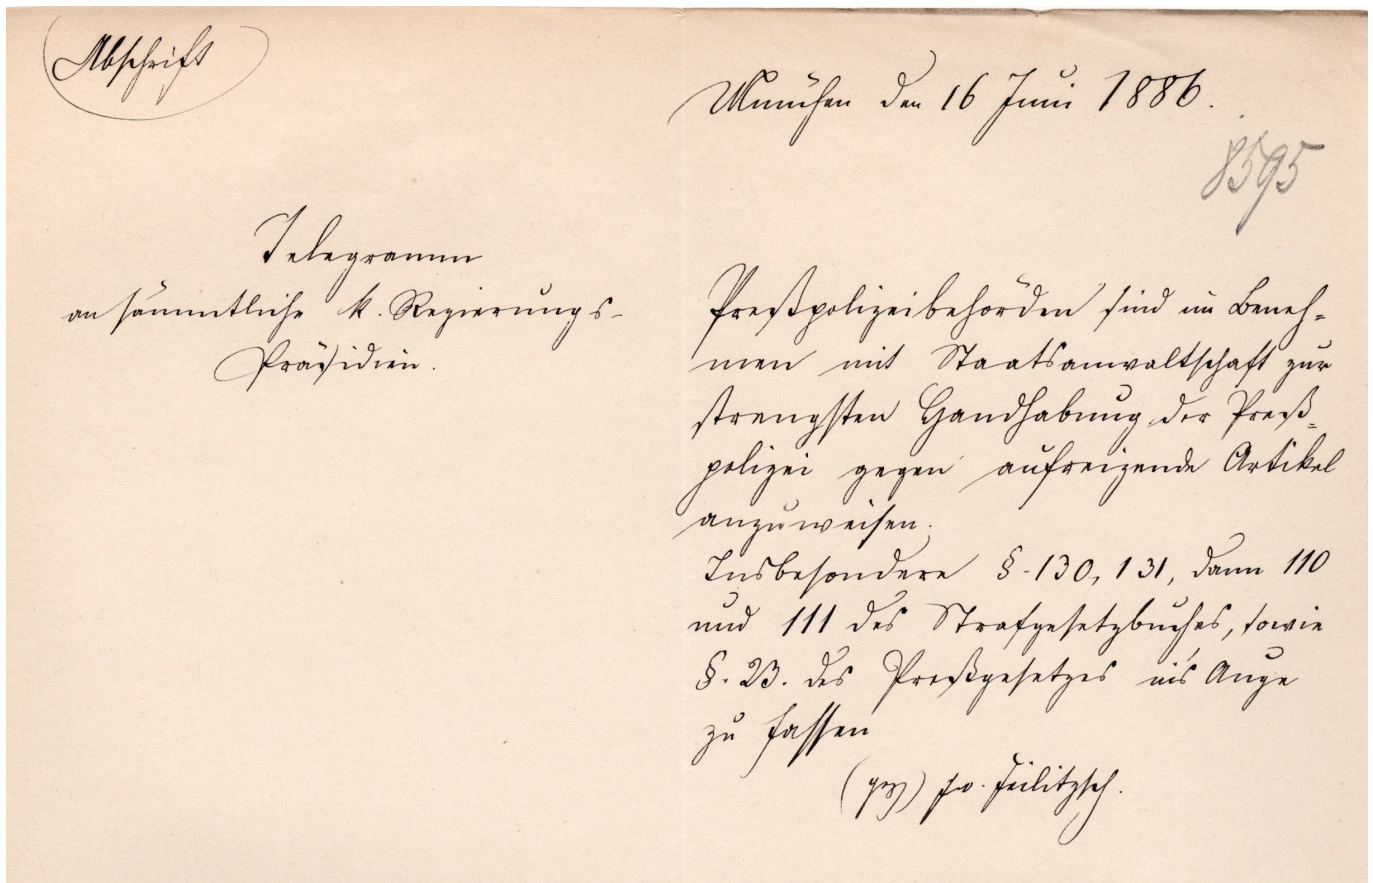 Abschrift
München den 16 Juni 1886.
8595
Telegramm
an sämmtliche k. Regierungs-
Präsidien.
Preßpolizeibehörden sind im Beneh-
men mit Staatsanwaltschaft zur
strengsten Handhabung der Preß-
polizei gegen aufreizende Artikel
anzuweisen.
Insbesondere §. 130, 131, dann 110
und 111 des Strafgesetzbuches, sowie
§. 23. des Preßgesetzes in's Auge
zu fassen
(gez) fr. v. Feilitzsch.